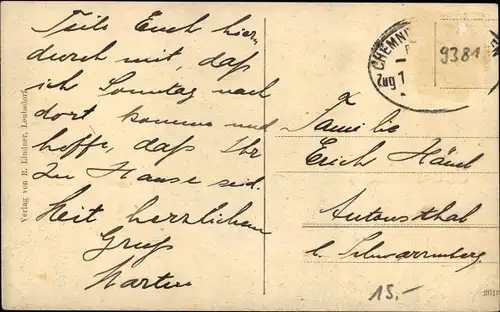 Teile Euch hier
durch mit, daß
ich Sonntag nach
dort komme und
hoffe, daß Ihr
zu Hause seid.
Mit herzlichem
Gruß
Martin
Verlag von R. Lindner, Leubsdorf.
CHEMN
Zug 1
9381
Familie
Erich Hänel
Antonsthal
b. Schwarzenberg.
15.-